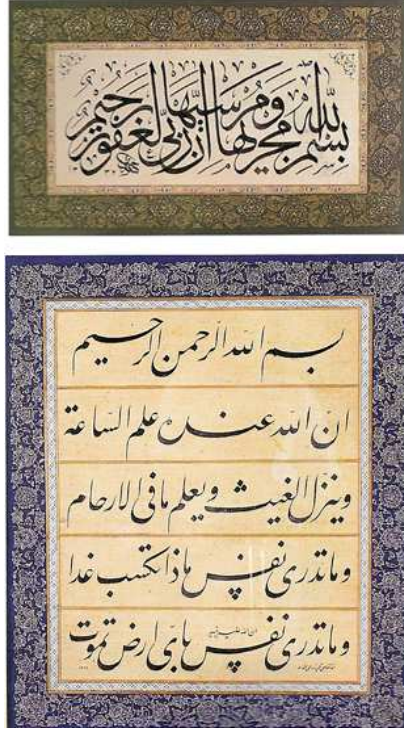 بسم الله مجريها ومرسيها ان ربي لغفور رحيم
بسم الله الرحمن الرحيم
ان الله عنده علم الساعة
وينزل الغيث ويعلم ما فى الارحام
وما تدرى نفس ماذا تكسب غدا
وما تدرى نفس باىّ ارض تموت
ان الله عليم خبير